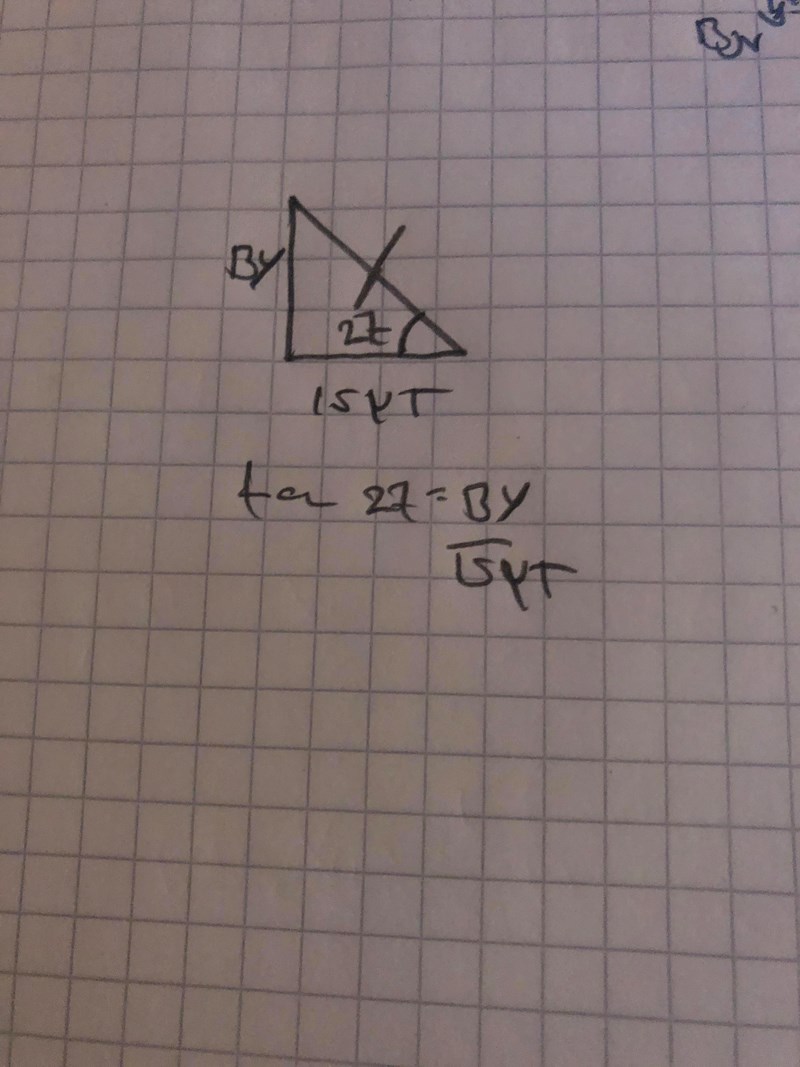 By
27
15 μT
tan 27 = By
15 μT